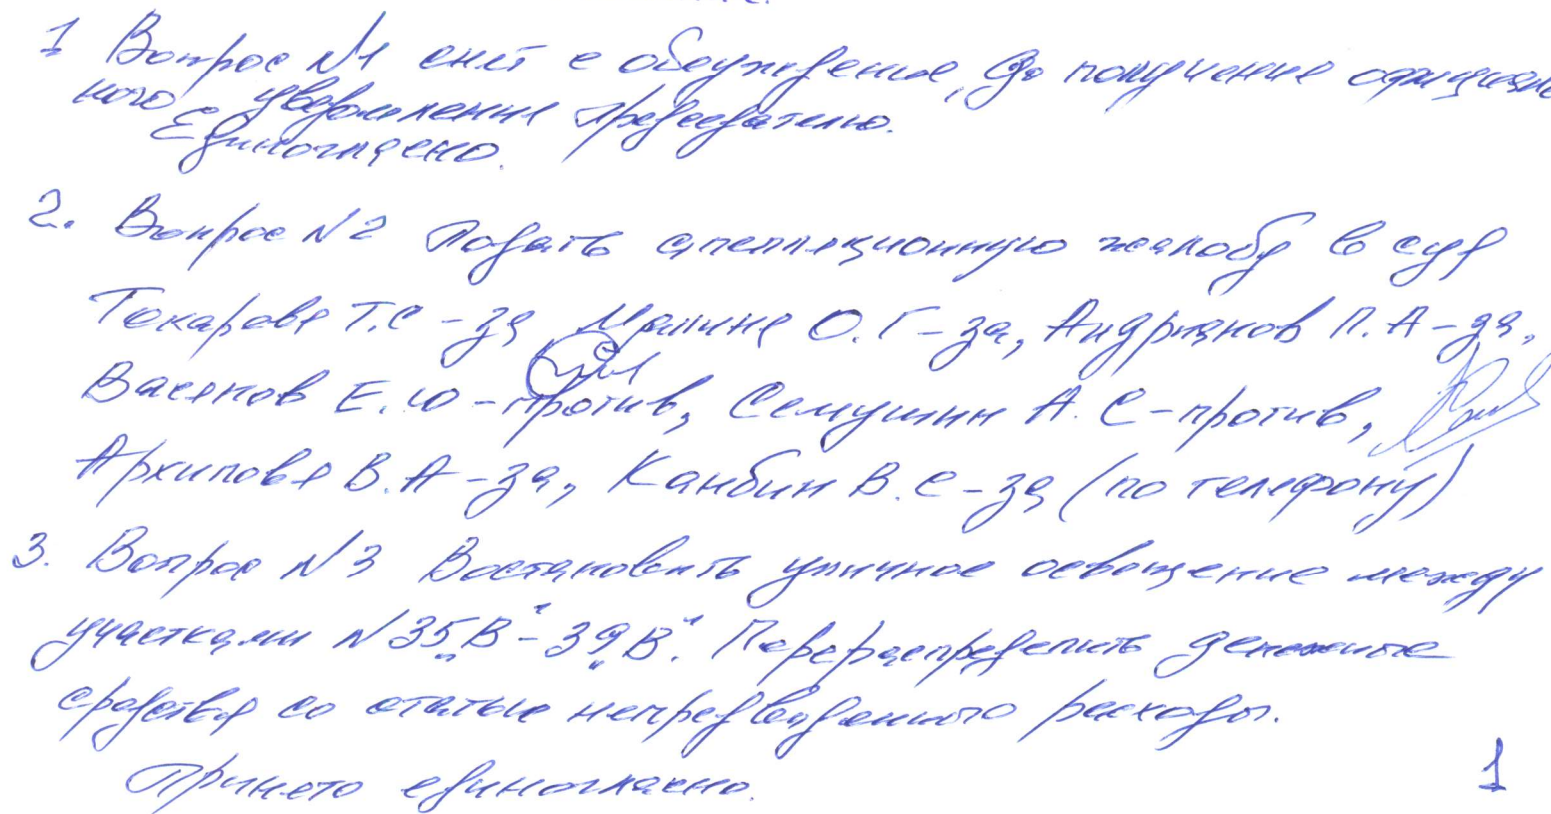 1 Вопрос №1 снят с обсуждения, до получения официаль
ного уведомления председателю.
Единогласно.
2. Вопрос №2 Подать апелляционную жалобу в суд
Токарева Т.С - за, О.Г - за, Андрианов П.А - за,
Васяков Е.Ю - против, Семушин А.С - против,
Архипова В.А - за, Канбин В.С - за (по телефону)
3. Вопрос №3 Востановить уличное освещение между
участками №35„В" - 39„В". Перераспределить денежные
средства со статьи непредвиденного расходы.
Принято единогласно.
1